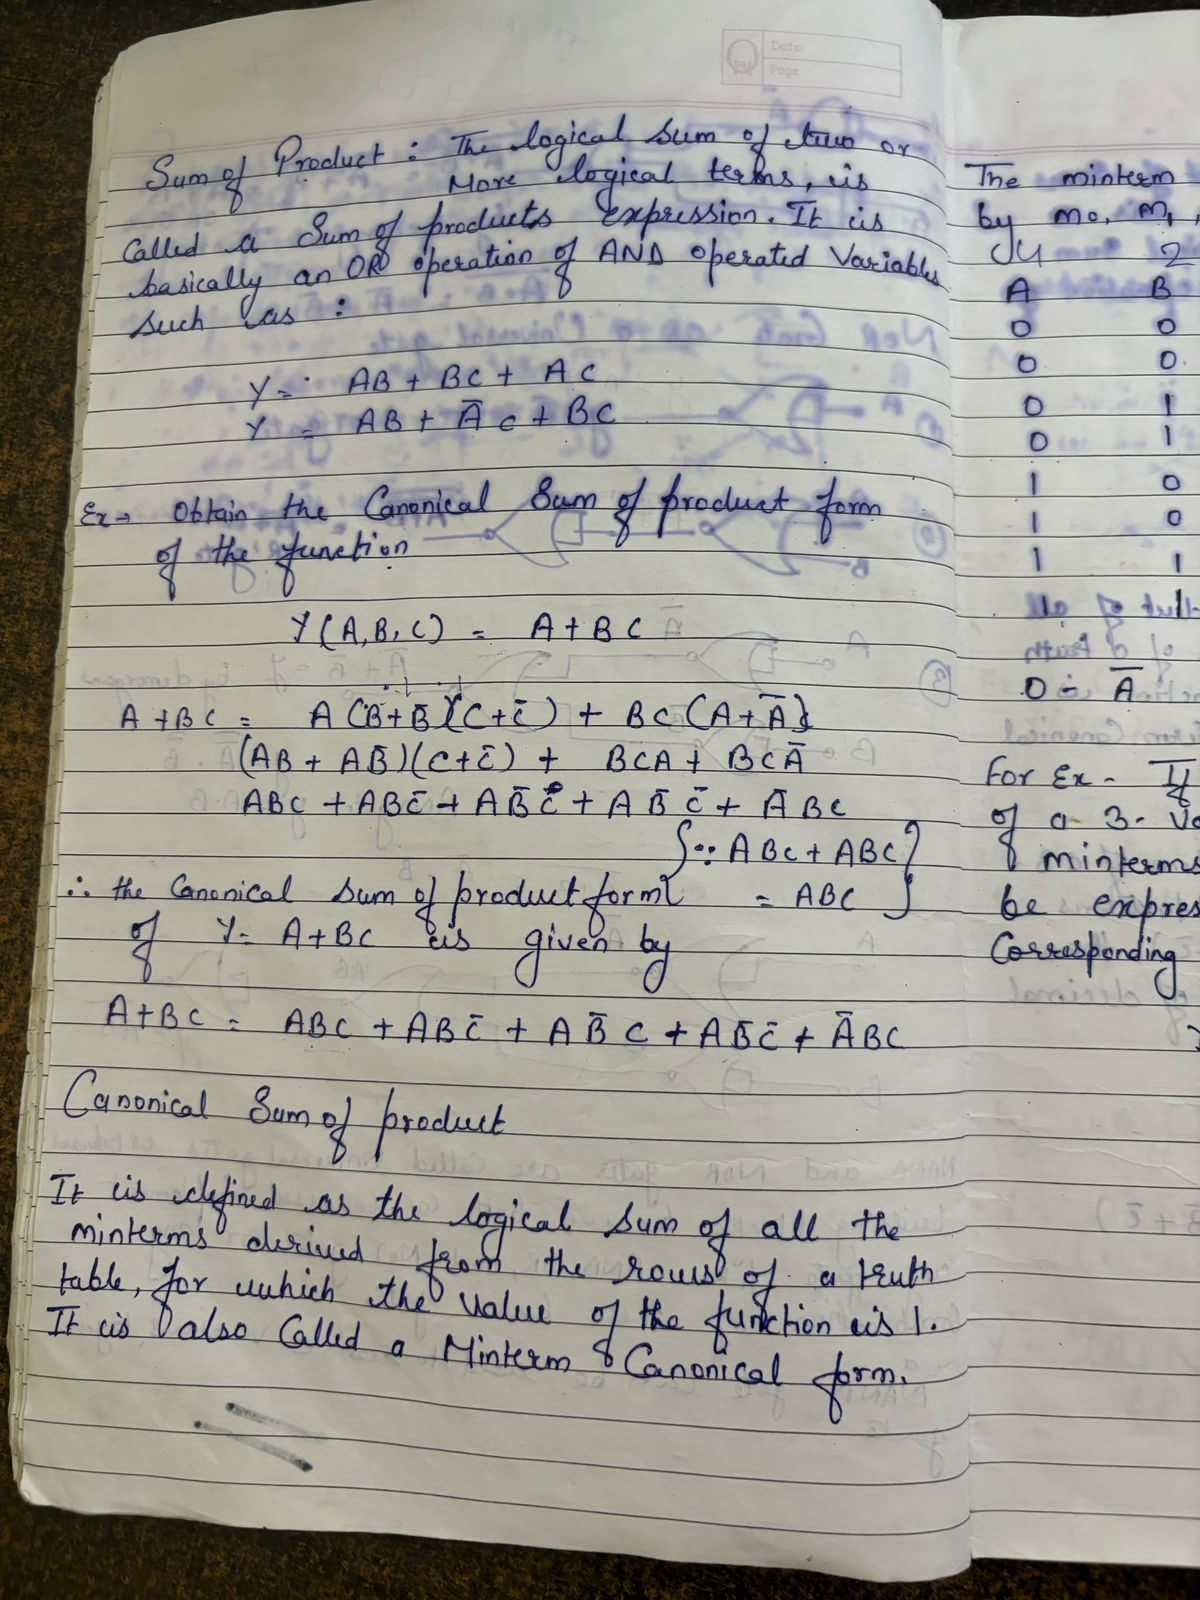 Date
Page
Sum of Product : The logical sum of two or
More logical terms, is
Called a Sum of products expression. It is
basically an OR operation of AND operated Variables
such as :
Y = AB + BC + AC
Y = AB + A̅C + BC
Ex → Obtain the Canonical Sum of product form
of the function
Y(A,B,C) = A+BC
A+BC = A(B+B̅)(C+C̅) + BC(A+A̅)
(AB + AB̅)(C+C̅) + BCA + BCA̅
ABC + ABC̅ + AB̅C + AB̅C̅ + A̅BC
{∵ ABC + ABC
= ABC }
∴ the Canonical Sum of product form
of Y = A+BC is given by
A+BC = ABC + ABC̅ + AB̅C + AB̅C̅ + A̅BC
Canonical Sum of product
It is defined as the logical sum of all the
minterms derived from the rows of a truth
table, for which the value of the function is 1.
It is also Called a Minterm Canonical form.
The minterm
by m0, m1,
A B
0 0
0 0
0 1
0 1
1 0
1 0
1 1
0 - A̅
For Ex - If
of a 3-
minterms
be
Corresponding